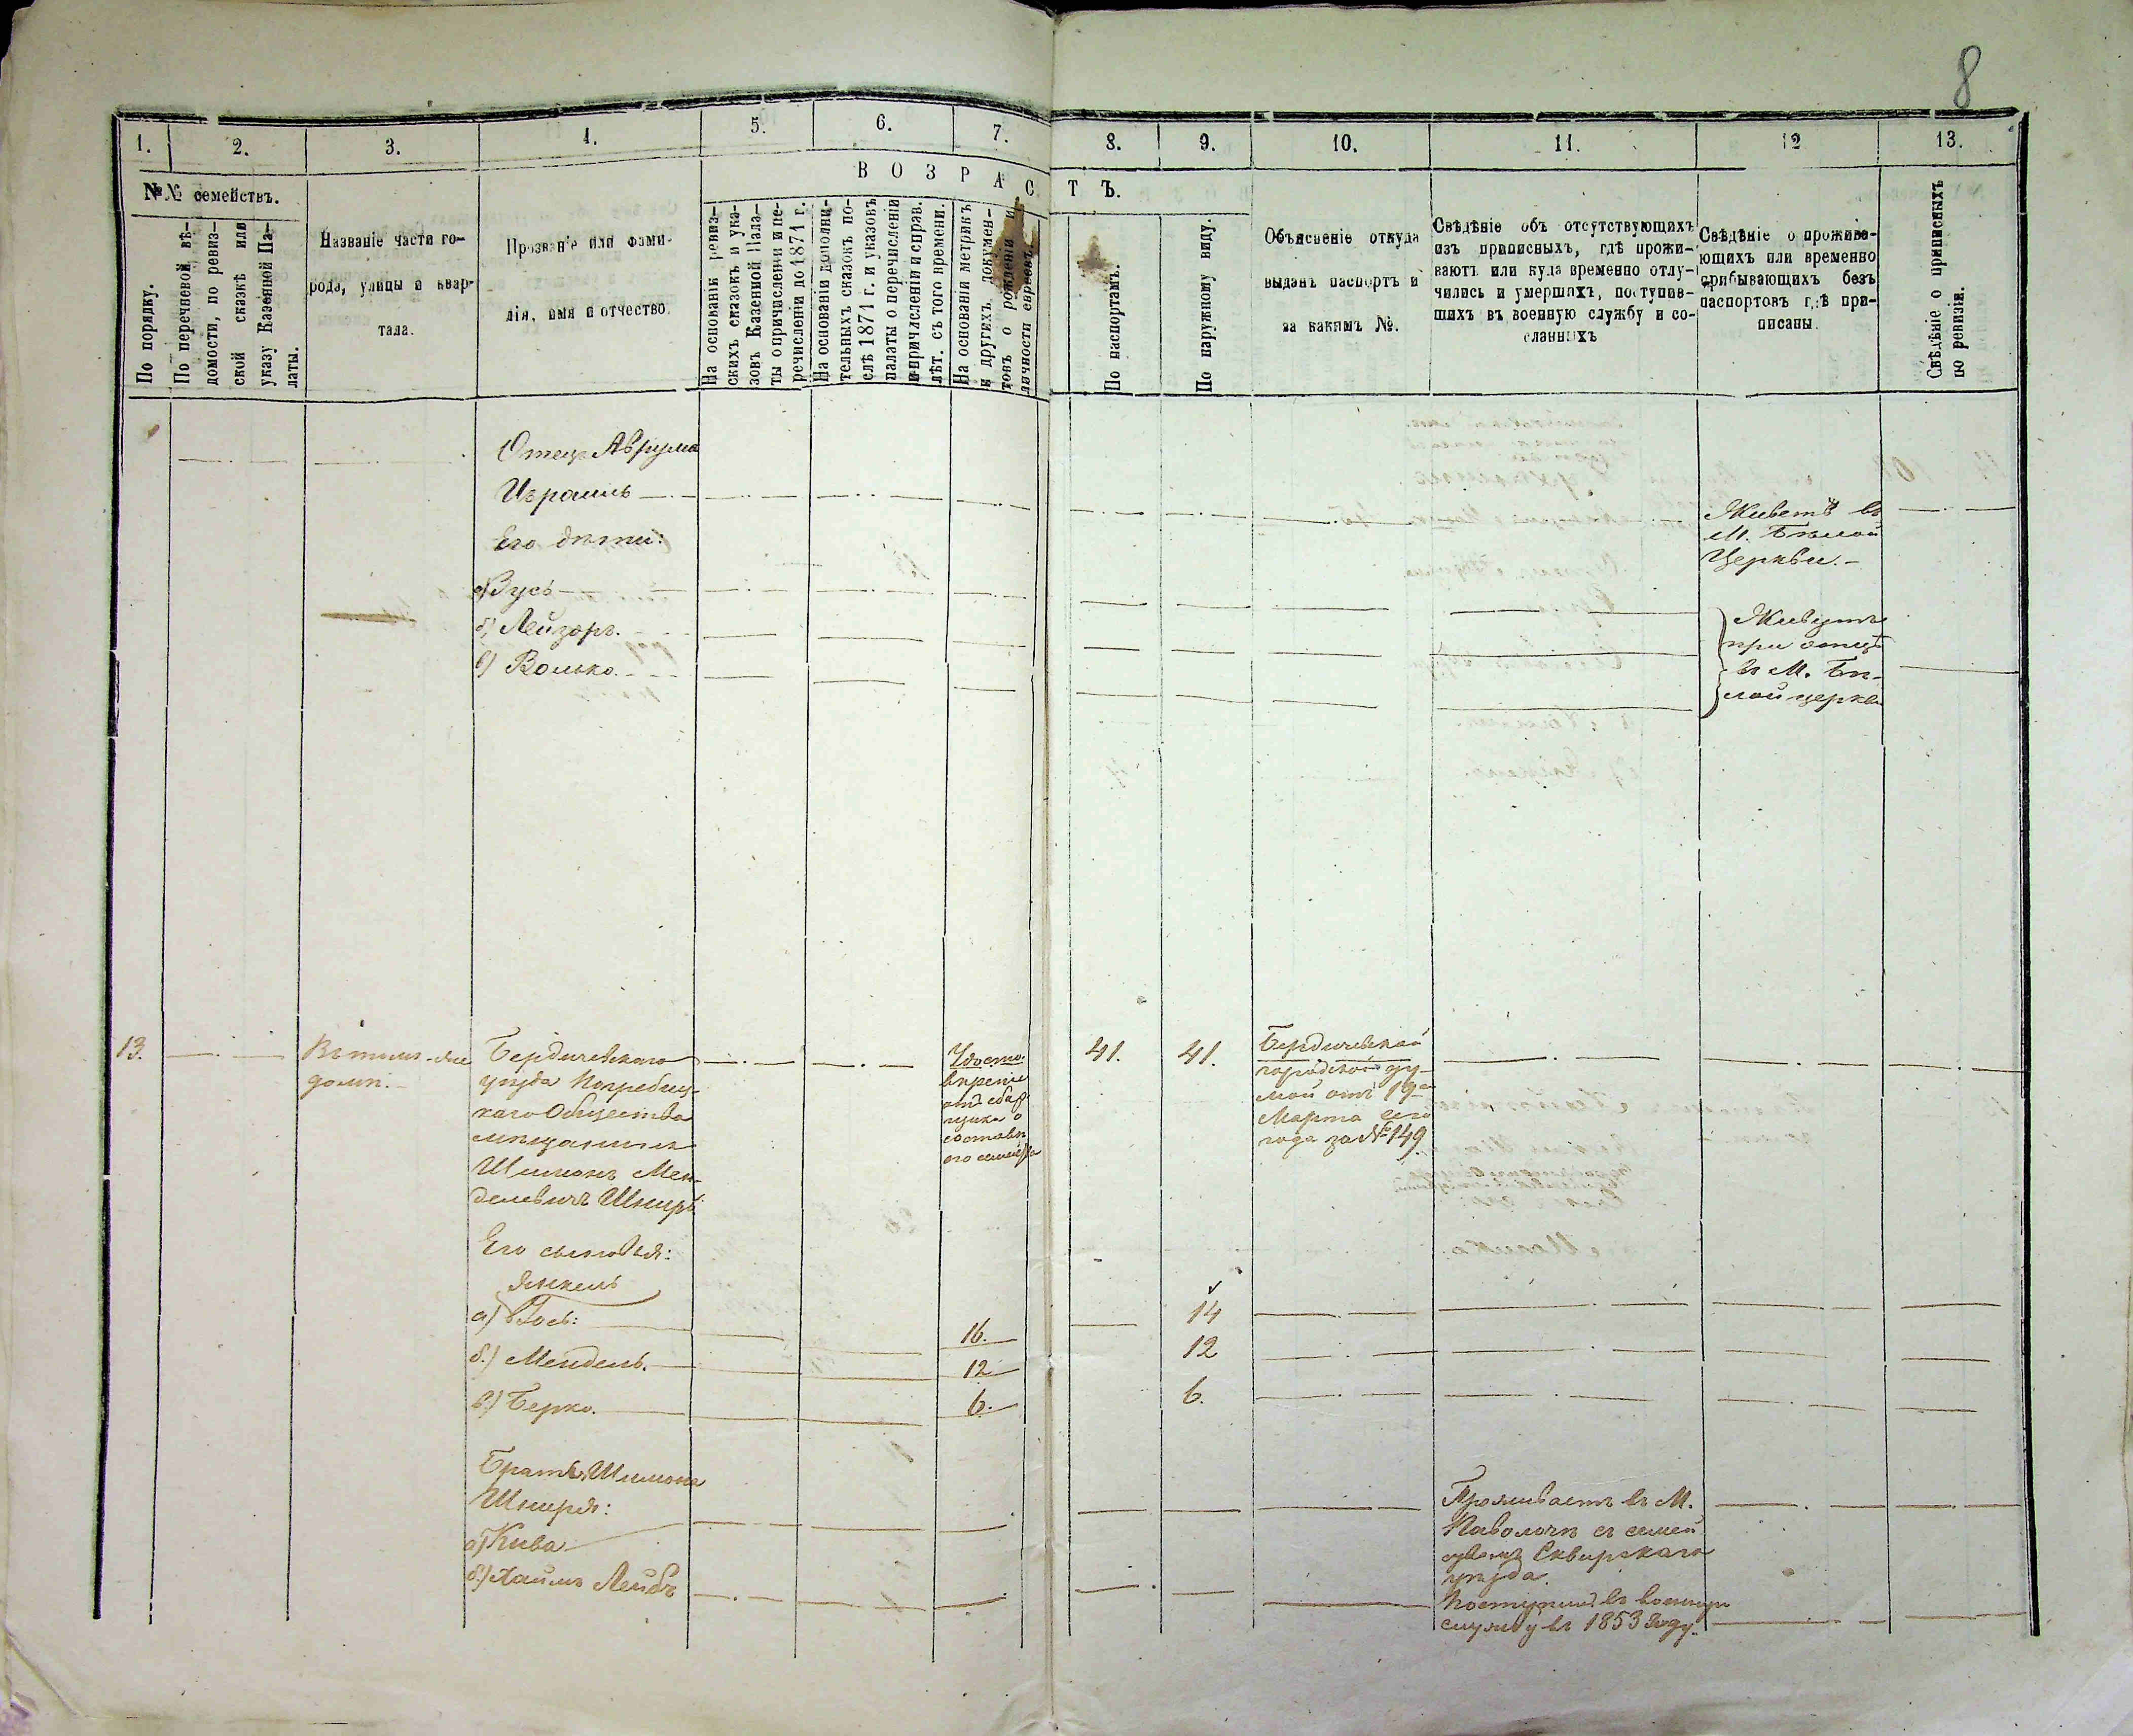 8
1.
2.
3.
4.
5.
6.
7.
8.
9.
10.
11.
12
13.
№№ семействъ.
ВОЗРАСТЪ.
По порядку.
По перечневой вѣ-
домости, по ревиз-
ской сказкѣ или
указу Казенной Па-
латы.
Названіе части го-
рода, улицы и квар-
тала.
Прозваніе или фами-
лія, имя и отчество.
На основаніи ревиз-
скихъ сказокъ и ука-
зовъ Казенной Пала-
ты о причисленіи и пе-
речисленіи до 1871 г.
На основаніи дополни-
тельныхъ сказокъ по-
слѣ 1871 г. и указовъ
палаты о перечисленіи
и причисленіи и справ.
лѣт. съ того времени.
На основаніи метрикъ
и другихъ докумен-
товъ о рожденіи и
личности евреевъ.
По паспортамъ.
По наружному виду.
Объясненіе откуда
выданъ паспортъ и
за какимъ №.
Свѣдѣніе объ отсутствующихъ
изъ приписныхъ, гдѣ прожи-
ваютъ или куда временно отлу-
чились и умершихъ, поступив-
шихъ въ военную службу и со-
сланныхъ
Свѣдѣніе о прожива-
ющихъ или временно
прибывающихъ безъ
паспортовъ гдѣ при-
писаны.
Свѣдѣніе о приписныхъ
по ревизіи.
Отецъ Аврума
Израиль
Живетъ въ
М. Бѣлой
Церкви.
Его дѣти:
а) Зусь
б) Лейзоръ.
в) Волько.
Живутъ
при отцѣ
въ М. Бѣ-
лой церкви
13.
Въ томъ-же
домѣ.
Бердичевскаго
уѣзда Погребищ-
каго Общества
мѣщанинъ
Шимонъ Мен-
делевичъ Шниръ
Удосто-
вѣреніе
отъ сбор-
щика о
составѣ
его семейства
41.
41.
Бердичевской
городской ду-
мой отъ 19го
Марта сего
года за № 149.
Его сыновья:
Янкель
а) Іось:
16.
14
б.) Мендель.
12
12
в) Берко.
6.
6.
Братья Шимона
Шниря:
а) Кива
Проживаетъ въ М.
Паволочи съ семей
ствомъ Сквирскаго
уѣзда.
б.) Хаимъ Лейбъ
Поступилъ въ военную
службу въ 1853 году.